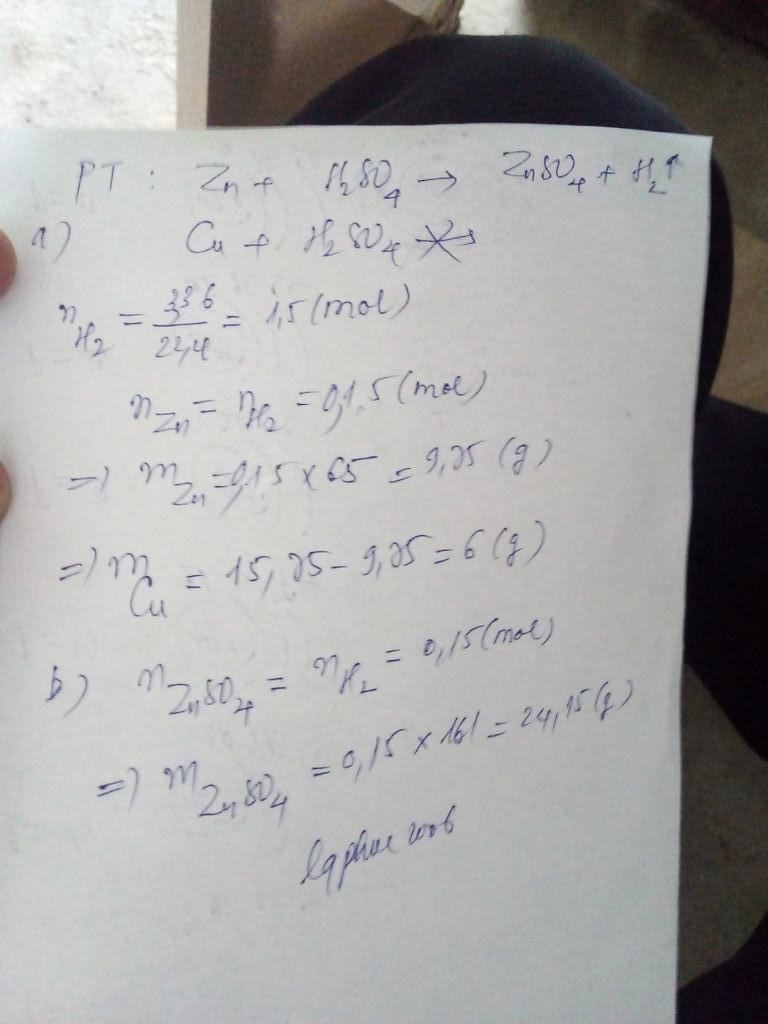 PT : Zn + H₂SO₄ → ZnSO₄ + H₂↑
a) Cu + H₂SO₄ ↛
n_H₂ = 336/22,4 = 1,5 (mol)
n_Zn = n_H₂ = 0,15 (mol)
=) m_Zn = 0,15 × 65 = 9,75 (g)
=) m_Cu = 15,75 - 9,75 = 6 (g)
b) n_ZnSO₄ = n_H₂ = 0,15 (mol)
=) m_ZnSO₄ = 0,15 × 161 = 24,15 (g)